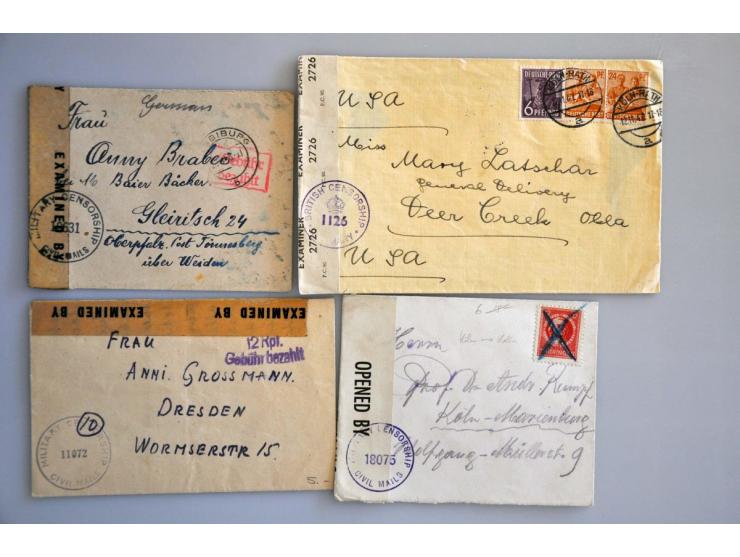 German
Frau
Anny Brabec
Baier Bäcker.
Gleiritsch 24
Oberpfalz. Post Tännesberg
über Weiden
EXAMINED BY
MILITARY CENSORSHIP
CIVIL MAILS
Gebühr
bezahlt
EXAMINER 2726
EXAMINER 2726
EXAMINER 2726
P.C. 90
BRITISH CENSORSHIP
1126
DEUTSCHE POST
6 PFENNIG
24
KÖLN-RATH
a
KÖLN-RATH
a
USA
Miss
Mary Latschar
General Delivery
Deer Creek Okla
USA
EXAMINED BY EXAMINED BY EXAMINED BY
12 Rpf.
Gebühr bezahlt
FRAU
ANNI. GROSSMANN.
DRESDEN
WORMSERSTR 15.
10
MILITARY CENSORSHIP
11072
CIVIL MAILS
5.-
OPENED BY
MILITARY CENSORSHIP
18075
CIVIL MAILS
6
Herrn
Prof. Dr. Andr. Rumpf
Köln-Marienburg
Wolfgang-Müllerstr 9